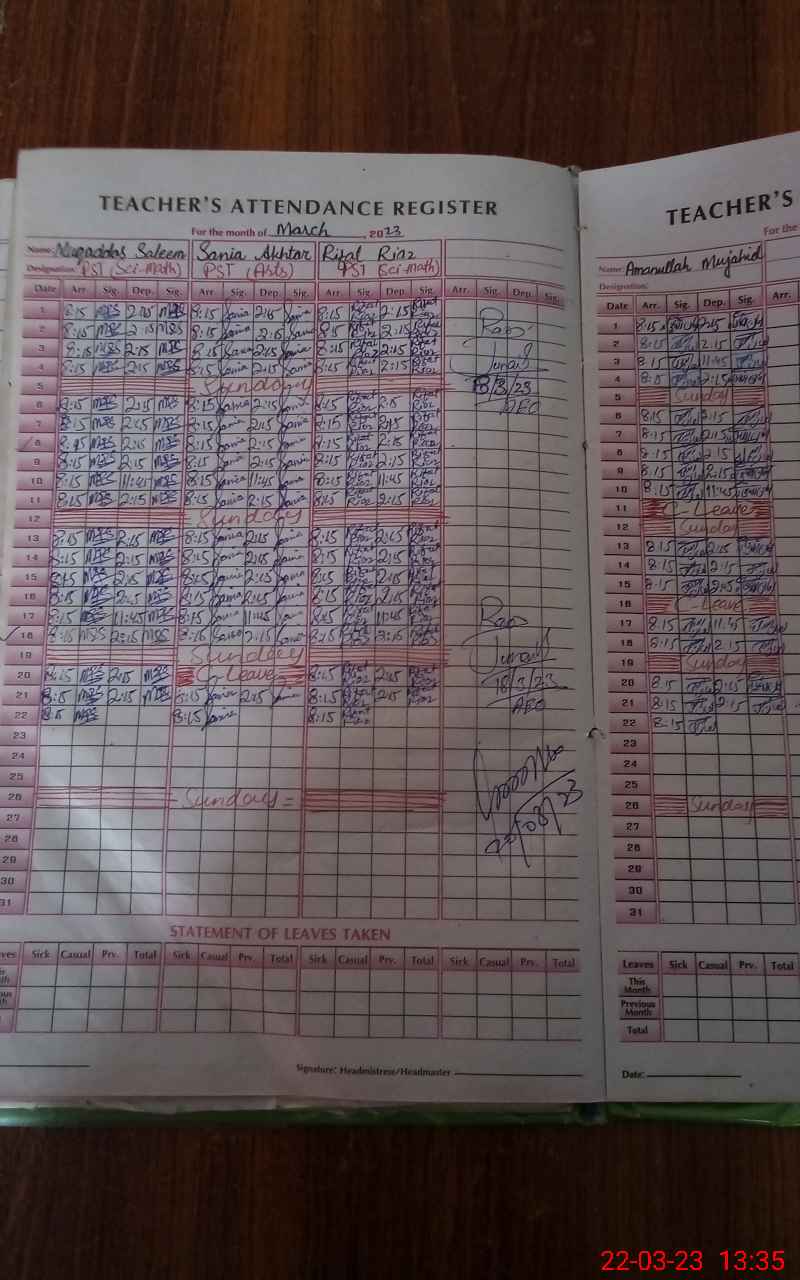 TEACHER'S ATTENDANCE REGISTER
For the month of March, 2023
Name: Muqaddas Saleem Sania Akhtar Rifat Riaz
Designation: PST (Sci-Math) PST (Arts) PST (Sci-Math)
Date Arr. Sig. Dep. Sig. Arr. Sig. Dep. Sig. Arr. Sig. Dep. Sig. Arr. Sig. Dep. Sig.
1 8:15 MSS 2:15 MSS 8:15 Sania 2:15 Sania 8:15 Rifat Riaz 2:15 Rifat Riaz
2 8:15 MSS 2:15 MSS 8:15 Sania 2:15 Sania 8:15 2:15 Rifat Riaz
3 8:15 MSS 2:15 MSS 8:15 Sania 2:15 Sania 8:15 Rifat Riaz 2:15 Rifat Riaz
4 8:15 MSS 2:15 MSS 8:15 Sania 2:15 Sania 8:15 Rifat Riaz 2:15 Rifat Riaz
5 Sunday
6 8:15 MSS 2:15 MSS 8:15 Sania 2:15 Sania 8:15 Rifat Riaz 2:15 Rifat Riaz
7 8:15 MSS 2:15 MSS 8:15 Sania 2:15 Sania 8:15 Rifat Riaz 2:15 Rifat Riaz
8 8:15 MSS 2:15 MSS 8:15 Sania 2:15 Sania 8:15 Rifat Riaz 2:15 Rifat Riaz
9 8:15 MSS 2:15 MSS 8:15 Sania 2:15 Sania 8:15 Rifat Riaz 2:15 Rifat Riaz
10 8:15 MSS 11:45 MSS 8:15 Sania 11:45 Sania 8:15 Rifat Riaz 11:45 Rifat Riaz
11 8:15 MSS 2:15 MSS 8:15 Sania 2:15 Sania 8:15 Rifat Riaz 2:15 Rifat Riaz
12 Sunday
13 8:15 MSS 2:15 MSS 8:15 Sania 2:15 Sania 8:15 Rifat Riaz 2:15 Rifat Riaz
14 8:15 MSS 2:15 MSS 8:15 Sania 2:15 Sania 8:15 Rifat Riaz 2:15 Rifat Riaz
15 8:15 MSS 2:15 MSS 8:15 Sania 2:15 Sania 8:15 Rifat Riaz 2:15 Rifat Riaz
16 8:15 MSS 2:15 MSS 8:15 Sania 2:15 Sania 8:15 Rifat Riaz 2:15 Rifat Riaz
17 8:15 MSS 11:45 MSS 8:15 Sania 11:45 Sania 8:15 Rifat Riaz 11:45 Rifat Riaz
18 8:15 MSS 2:15 MSS 8:15 Sania 2:15 Sania 8:15 Rifat Riaz 2:15 Rifat Riaz
19 Sunday
20 8:15 MSS 2:15 MSS C-Leave 8:15 Rifat Riaz 2:15 Rifat Riaz
21 8:15 MSS 2:15 MSS 8:15 Sania 2:15 Sania 8:15 Rifat Riaz 2:15 Rifat Riaz
22 8:15 MSS 8:15 Sania 8:15 Rifat Riaz
23
24
25
26 Sunday
27
28
29
30
31
Rao
Junaid
8/3/23
AEO
Rao
Junaid
18/3/23
AEO
STATEMENT OF LEAVES TAKEN
Sick Casual Prv. Total Sick Casual Prv. Total Sick Casual Prv. Total Sick Casual Prv. Total
Signature: Headmistress/Headmaster
TEACHER'S
For the
Name: Amanullah Mujahid
Designation:
Date Arr. Sig. Dep. Sig.
1 8:15 2:15
2 8:15 2:15
3 8:15 11:45
4 8:15 2:15
5 Sunday
6 8:15 2:15
7 8:15 2:15
8 8:15 2:15
9 8:15 2:15
10 8:15 11:45
11 C-Leave
12 Sunday
13 8:15 2:15
14 8:15 2:15
15 8:15 2:15
16 C-Leave
17 8:15 11:45
18 8:15 2:15
19 Sunday
20 8:15 2:15
21 8:15 2:15
22 8:15
23
24
25
26 Sunday
27
28
29
30
31
Leaves Sick Casual Prv. Total
This Month
Previous Month
Total
Date:
22-03-23 13:35